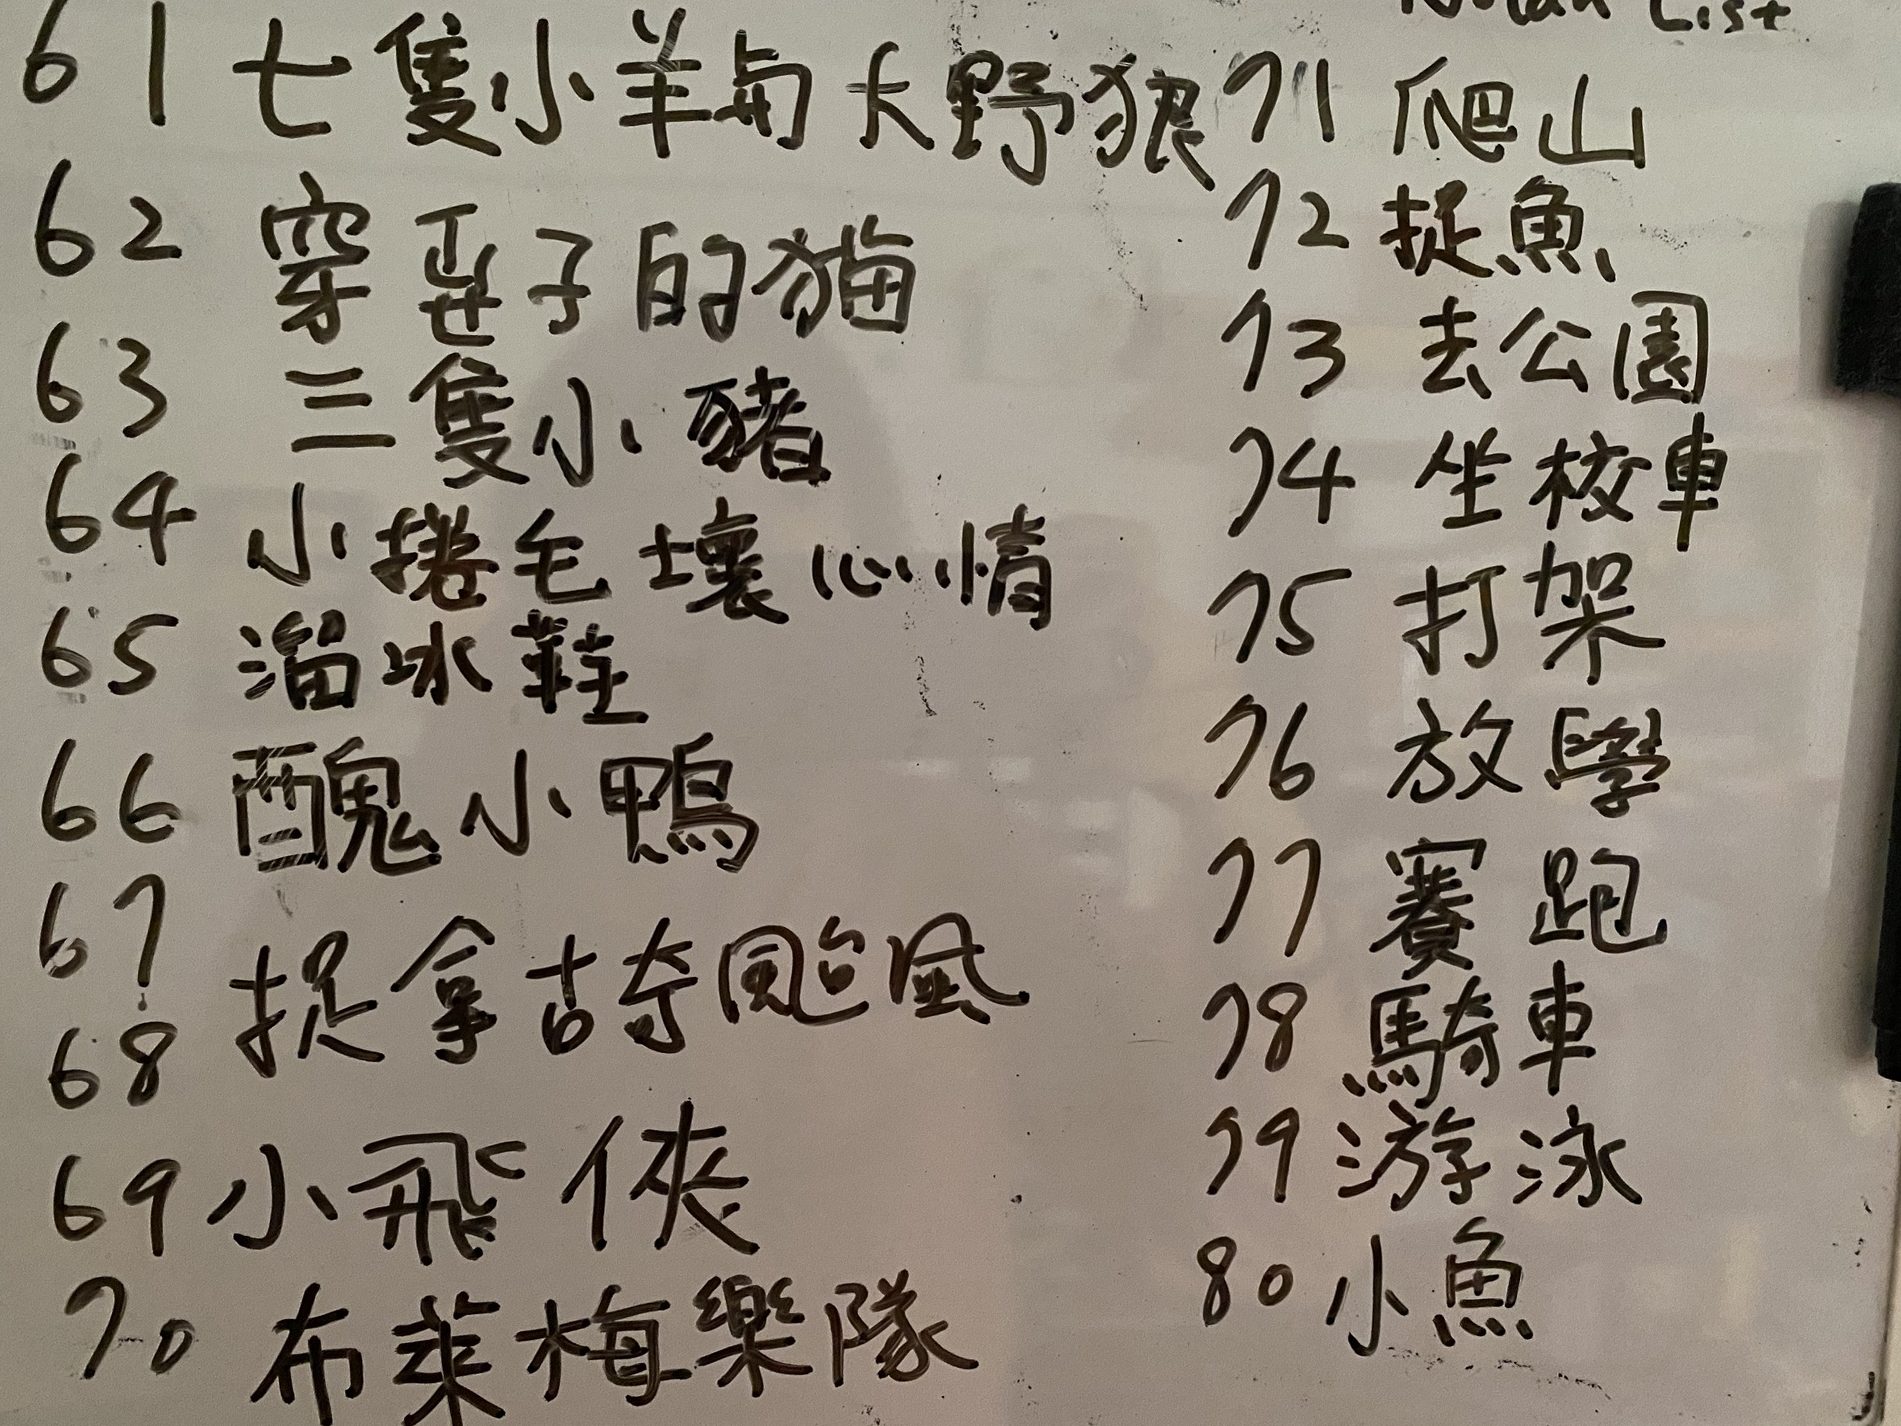 61 七隻小羊與大野狼
62 穿 子的貓
63 三隻小豬
64 小捲毛壞心情
65 溜冰鞋
66 醜小鴨
67 捉拿古 颱風
68
69 小飛俠
70 布萊梅樂隊
List
71 爬山
72 捉魚
73 去公園
74 坐校車
75 打架
76 放學
77 賽跑
78 騎車
79 游泳
80 小魚